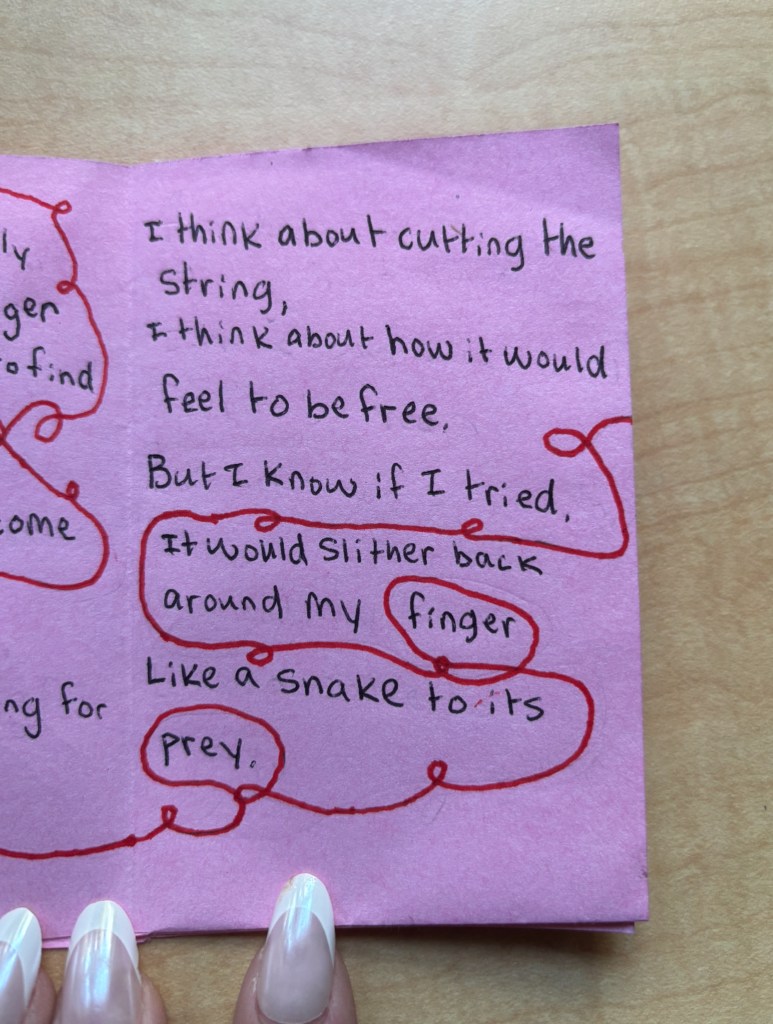 ly
ger
to find
come
ng for
I think about cutting the
string,
I think about how it would
feel to be free.
But I know if I tried,
It would slither back
around my finger
Like a snake to its
prey.